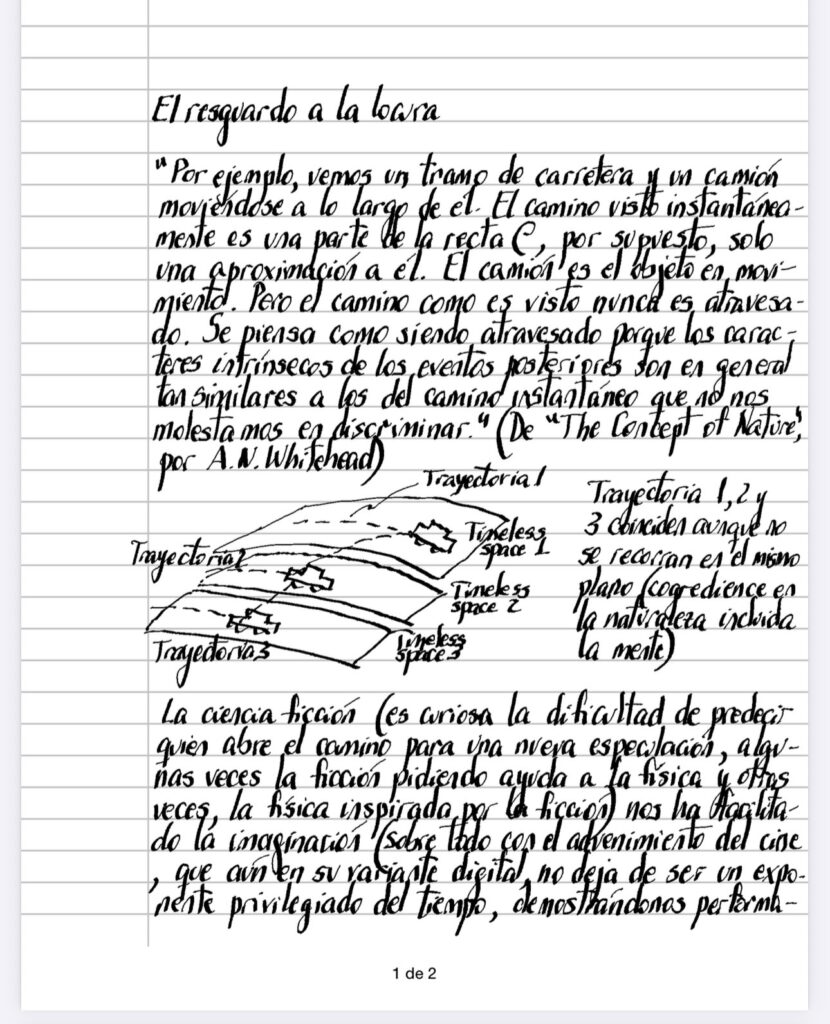 El resguardo a la locura
"Por ejemplo, vemos un tramo de carretera y un camión
moviéndose a lo largo de él. El camino visto instantánea-
mente es una parte de la recta C, por supuesto, solo
una aproximación a él. El camión es el objeto en movi-
miento. Pero el camino como es visto nunca es atravesa-
do. Se piensa como siendo atravesado porque los carac-
teres intrínsecos de los eventos posteriores son en general
tan similares a los del camino instantáneo que no nos
molestamos en discriminar." (De "The Concept of Nature",
por A.N. Whitehead)
Trayectoria 1
Timeless
space 1
Trayectoria 2
Timeless
space 2
Trayectoria 3
Timeless
space 3
Trayectoria 1, 2 y
3 coinciden aunque no
se recorran en el mismo
plano (cogredience en
la naturaleza incluida
la mente)
La ciencia ficción (es curiosa la dificultad de predecir
quién abre el camino para una nueva especulación, algu-
nas veces la ficción pidiendo ayuda a la física y otras
veces, la física inspirada por la ficción) nos ha facilita-
do la imaginación (sobre todo con el advenimiento del cine
, que aún en su variante digital, no deja de ser un expo-
nente privilegiado del tiempo, demostrándonos performa-
1 de 2